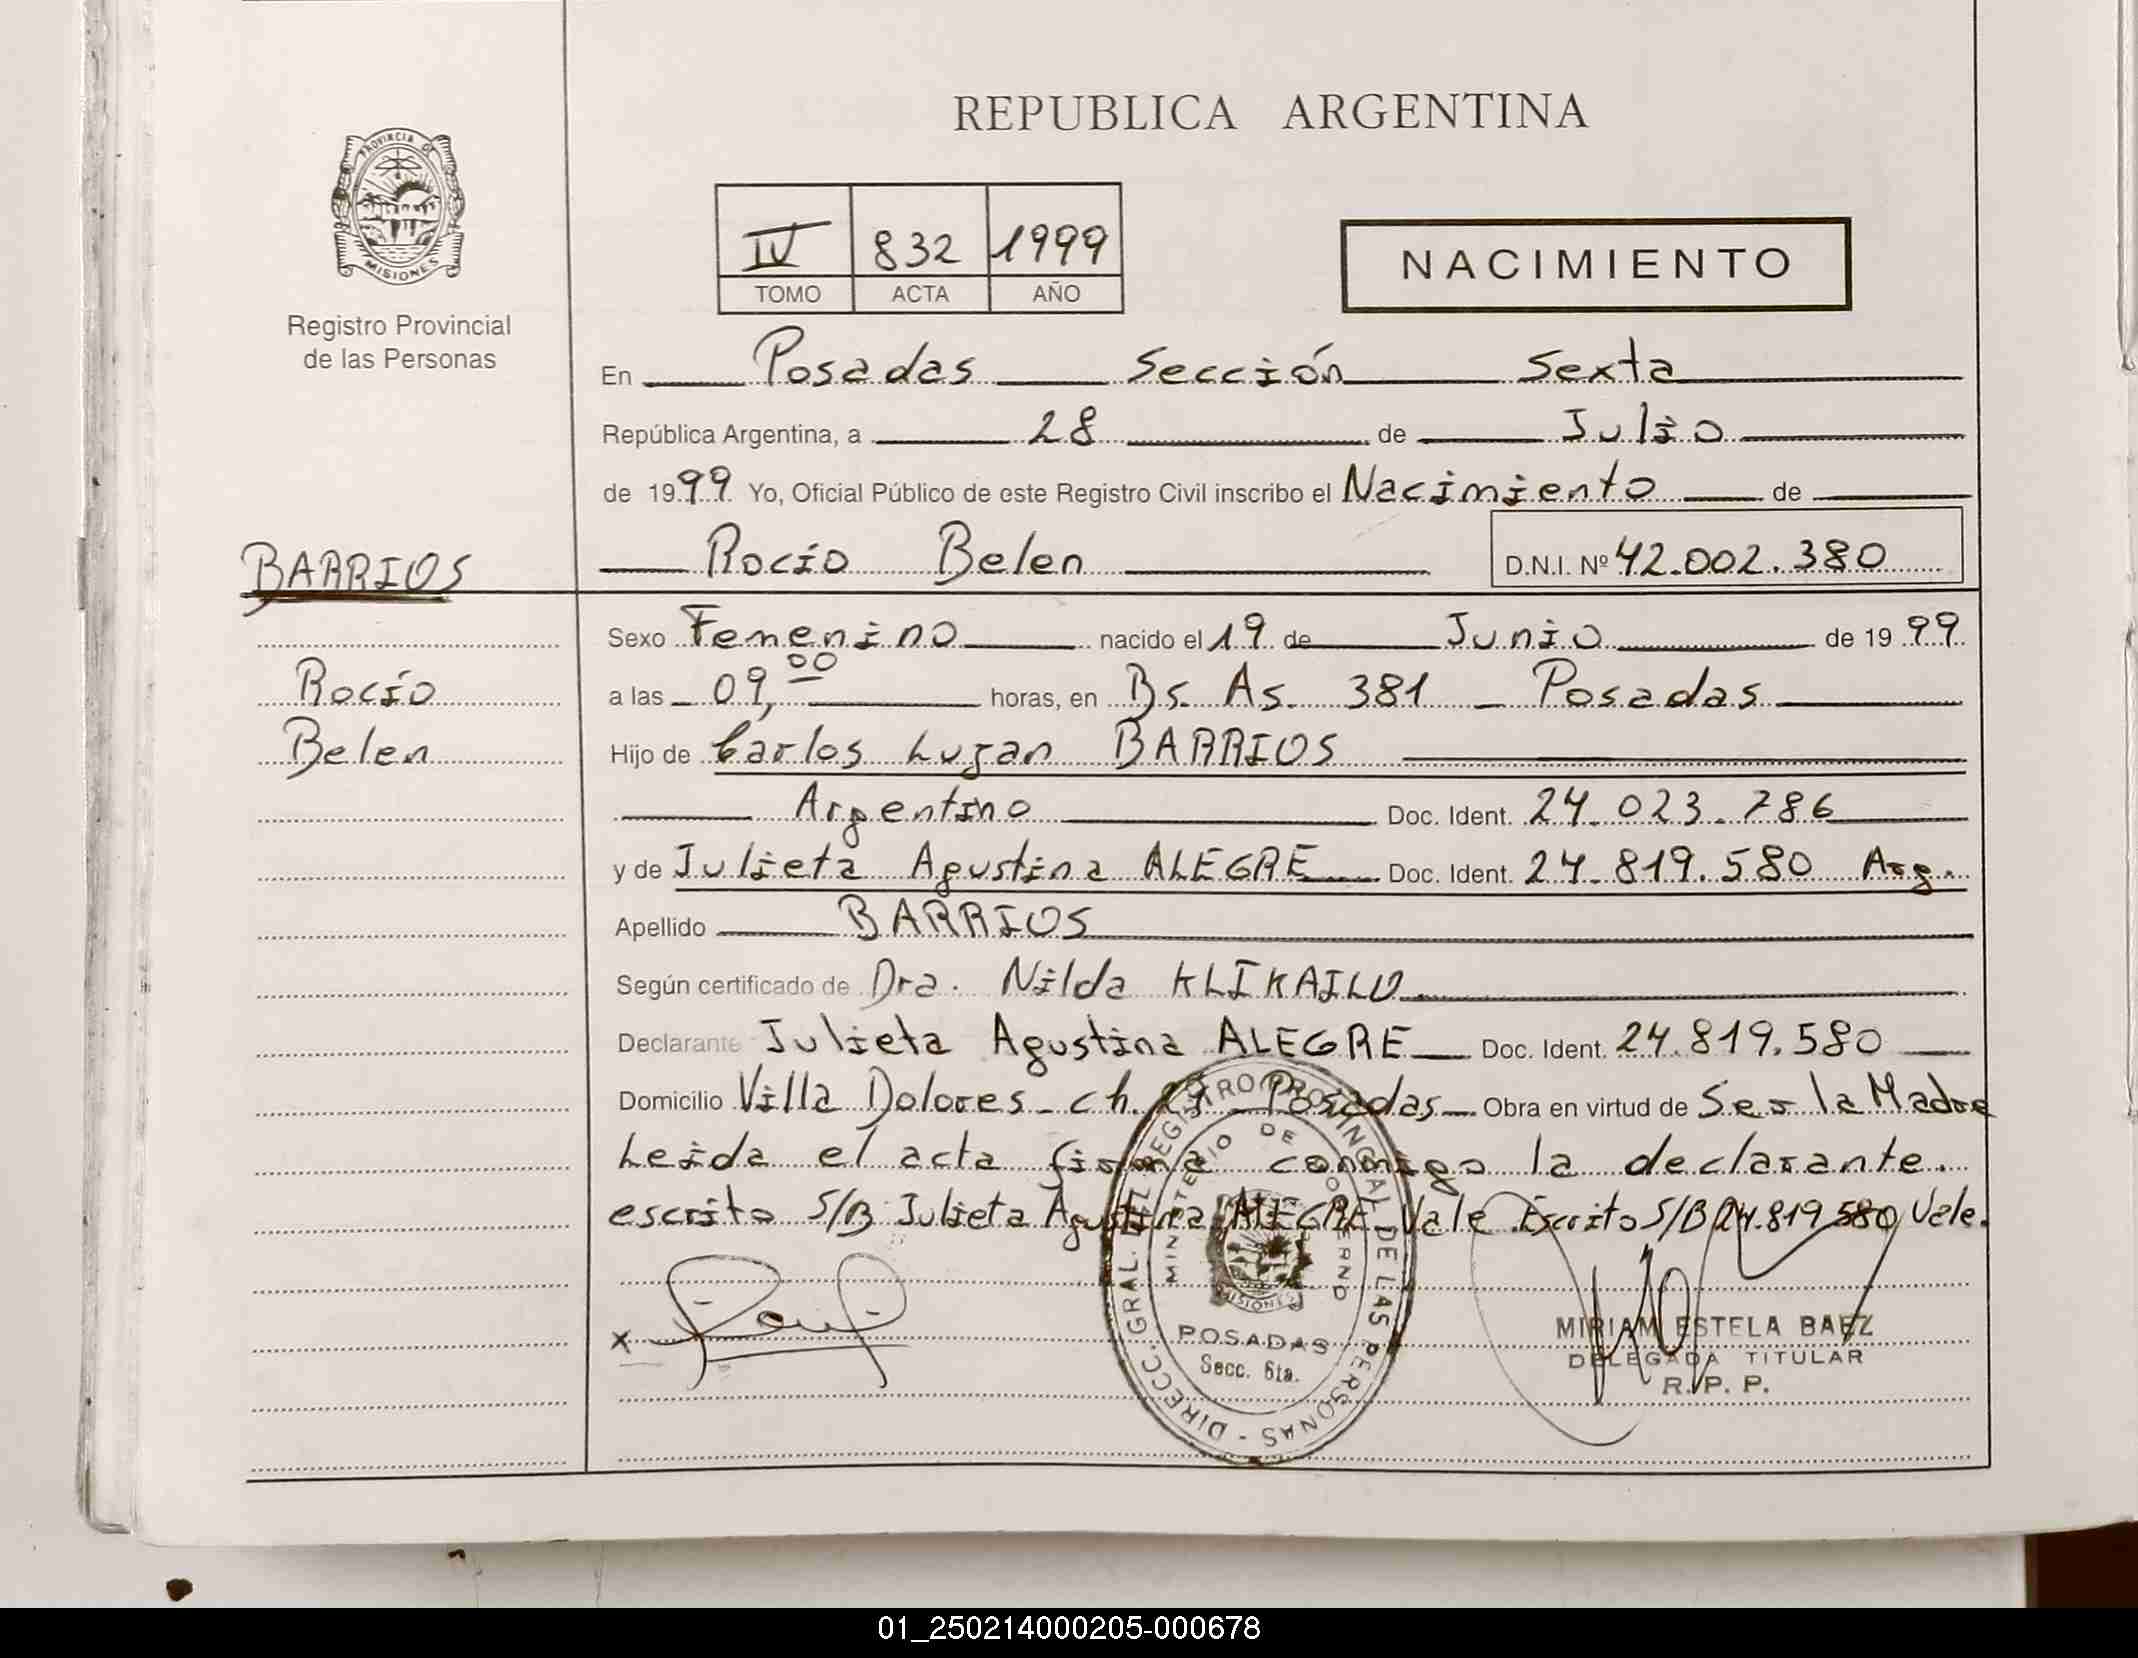 REPUBLICA ARGENTINA
PROVINCIA DE
MISIONES
Registro Provincial
de las Personas
IV 832 1999
TOMO ACTA AÑO
NACIMIENTO
En Posadas Sección Sexta
República Argentina, a 28 de Julio
de 1999 Yo, Oficial Público de este Registro Civil inscribo el Nacimiento de
BARRIOS
Rocío Belen D.N.I. Nº 42.002.380
Sexo Femenino nacido el 19 de Junio de 1999
Rocío
a las 09,00 horas, en Bs. As. 381 - Posadas
Belen
Hijo de Carlos Lujan BARRIOS
Argentino Doc. Ident. 24.023.786
y de Julieta Agustina ALEGRE Doc. Ident. 24.819.580 Arg.
Apellido BARRIOS
Según certificado de Dra. Nilda KLIKAILO
Declarante Julieta Agustina ALEGRE Doc. Ident. 24.819.580
Domicilio Villa Dolores - ch. - Posadas - Obra en virtud de Ser la Madre
Leida el acta firma conmigo la declarante.
escrito S/B Julieta Agustina ALEGRE Vale Escrito S/B 24.819.580 Vale.
DIRECC. GRAL. DEL REGISTRO PROVINCIAL DE LAS PERSONAS -
MINISTERIO DE GOBIERNO
MISIONES
POSADAS
Secc. 6ta.
x
MIRIAM ESTELA BAEZ
DELEGADA TITULAR
R. P. P.
01_250214000205-000678